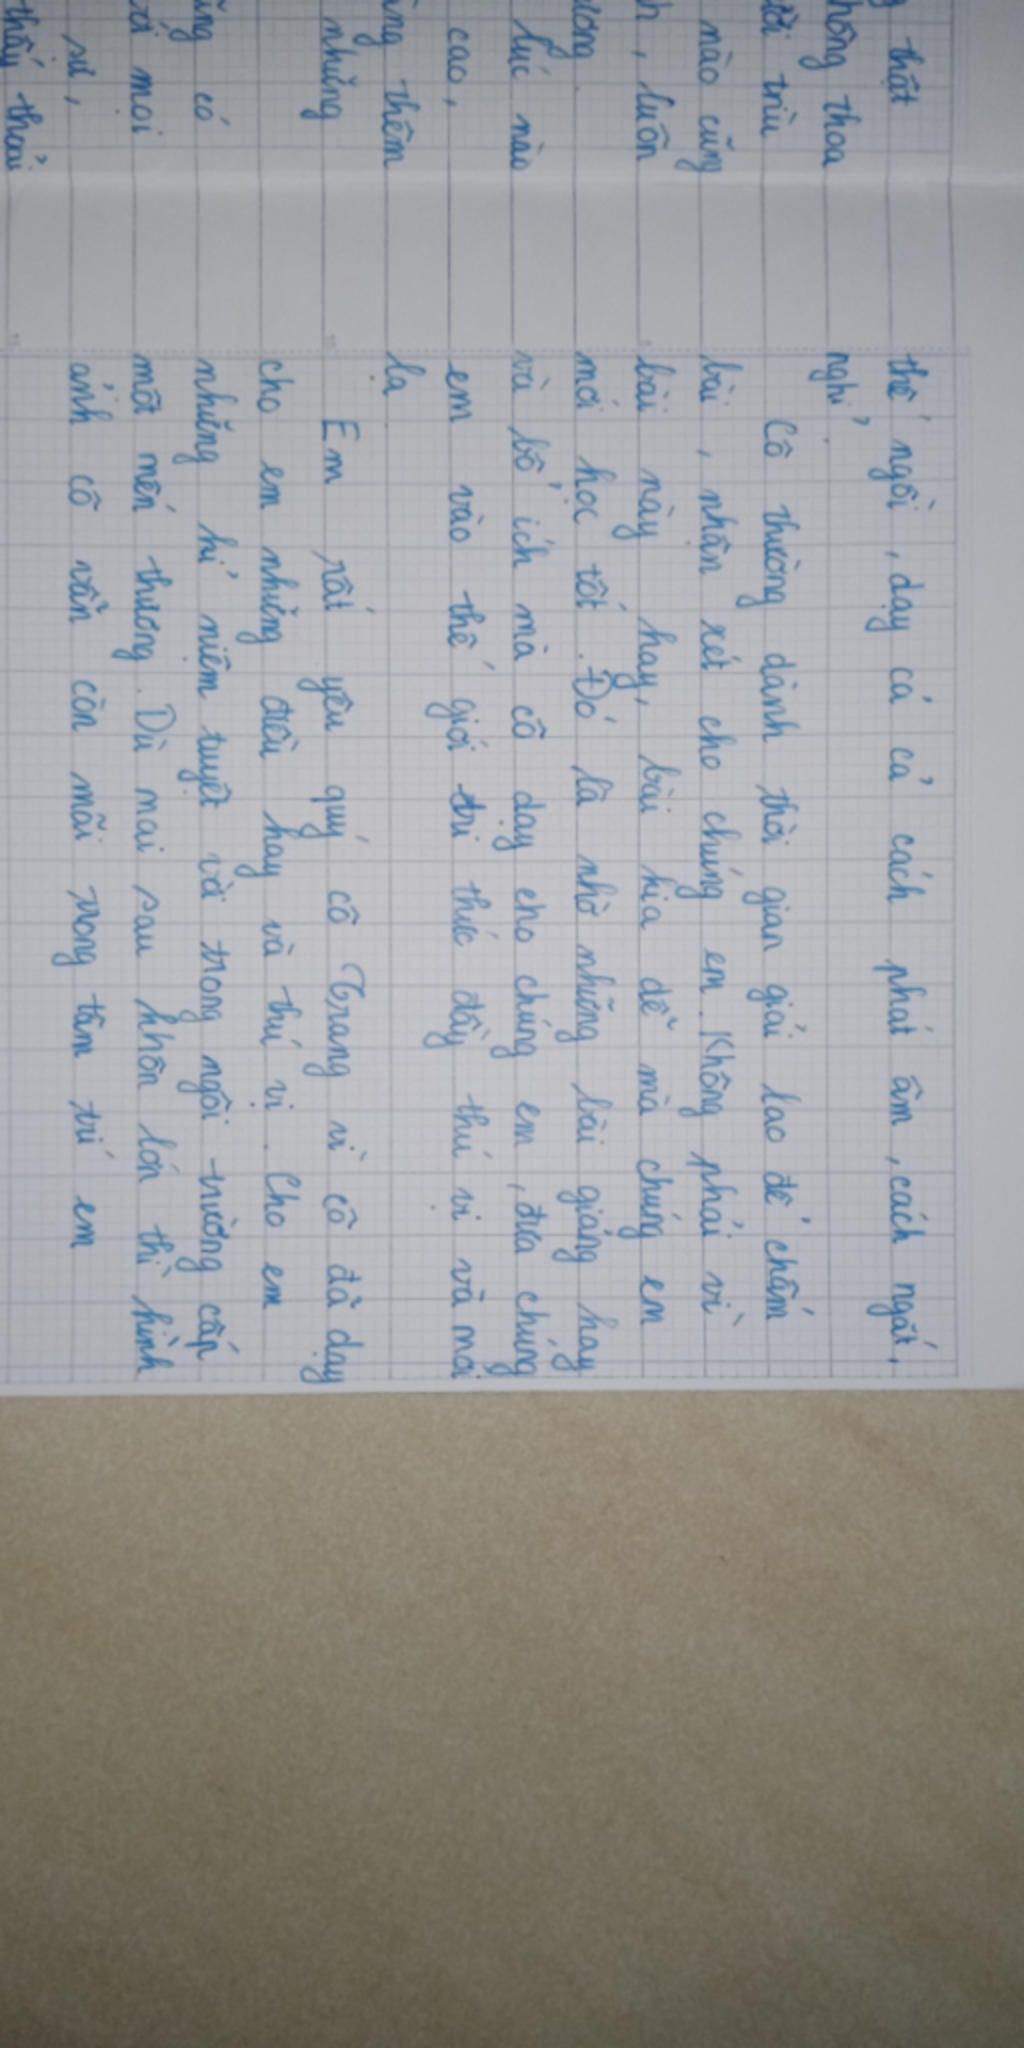 thật
thoa
trìu
nào cũng
, luôn
lúc nào
cao,
thêm
những
có
mọi
sư,
thấy thoải
thế ngồi, dạy cả cả cách phát âm, cách ngắt,
nghỉ.
Cô thường dành thời gian giải lao để chấm
bài, nhận xét cho chúng em. Không phải vì
bài này hay, bài kia dễ mà chúng em
mới học tốt. Đó là nhờ những bài giảng hay
và bổ ích mà cô dạy cho chúng em, đưa chúng
em vào thế giới tri thức đầy thú vị và mới
lạ
Em rất yêu quý cô Trang vì cô đã dạy
cho em những điều hay và thú vị. Cho em
những kỉ niệm tuyệt và trong ngôi trường cấp
một mến thương. Dù mai sau khôn lớn thì hình
ảnh cô vẫn còn mãi trong tâm trí em